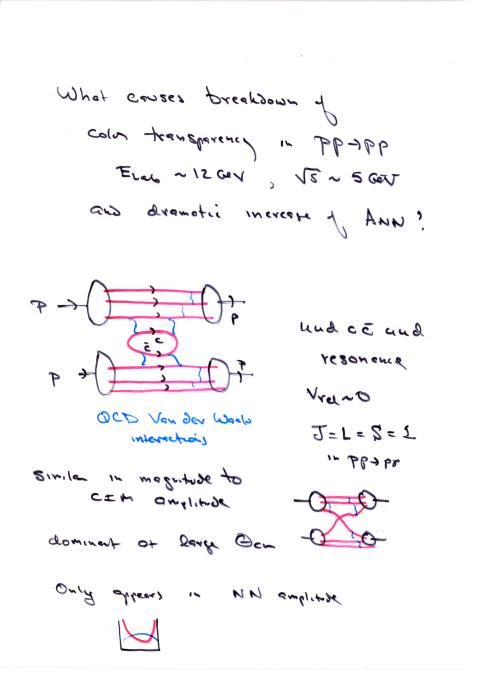 What causes breakdown of
color transparency in pp→pp
E_Lab ~ 12 GeV , √s ~ 5 GeV
and dramatic increase of A_NN ?
P → P
c
c̄
P → P
QCD Van der Waals
interactions
uud cc̄ uud
resonance
V_rel ~ 0
J = L = S = 1
in pp→pp
Similar in magnitude to
CIM amplitude
dominant at large Θ_cm
Only appears in NN amplitude